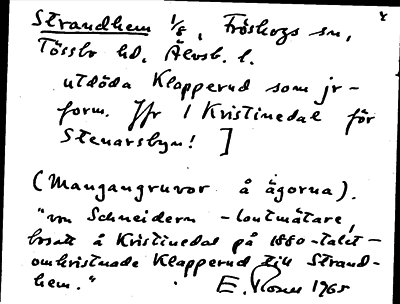 Strandhem 1/8, Fröskogs sn,
Tössbo hd, Älvsb. l.
utdöda Klapperud som jr-
form. Jfr 1 Kristinedal för
Stenarsbyn! ]
(Mangangruvor å ägorna).
"von Schneidern - lantmätare,
bosatt å Kristinedal på 1880-talet -
omkristnade Klapperud till Strand-
hem."
E. 1965